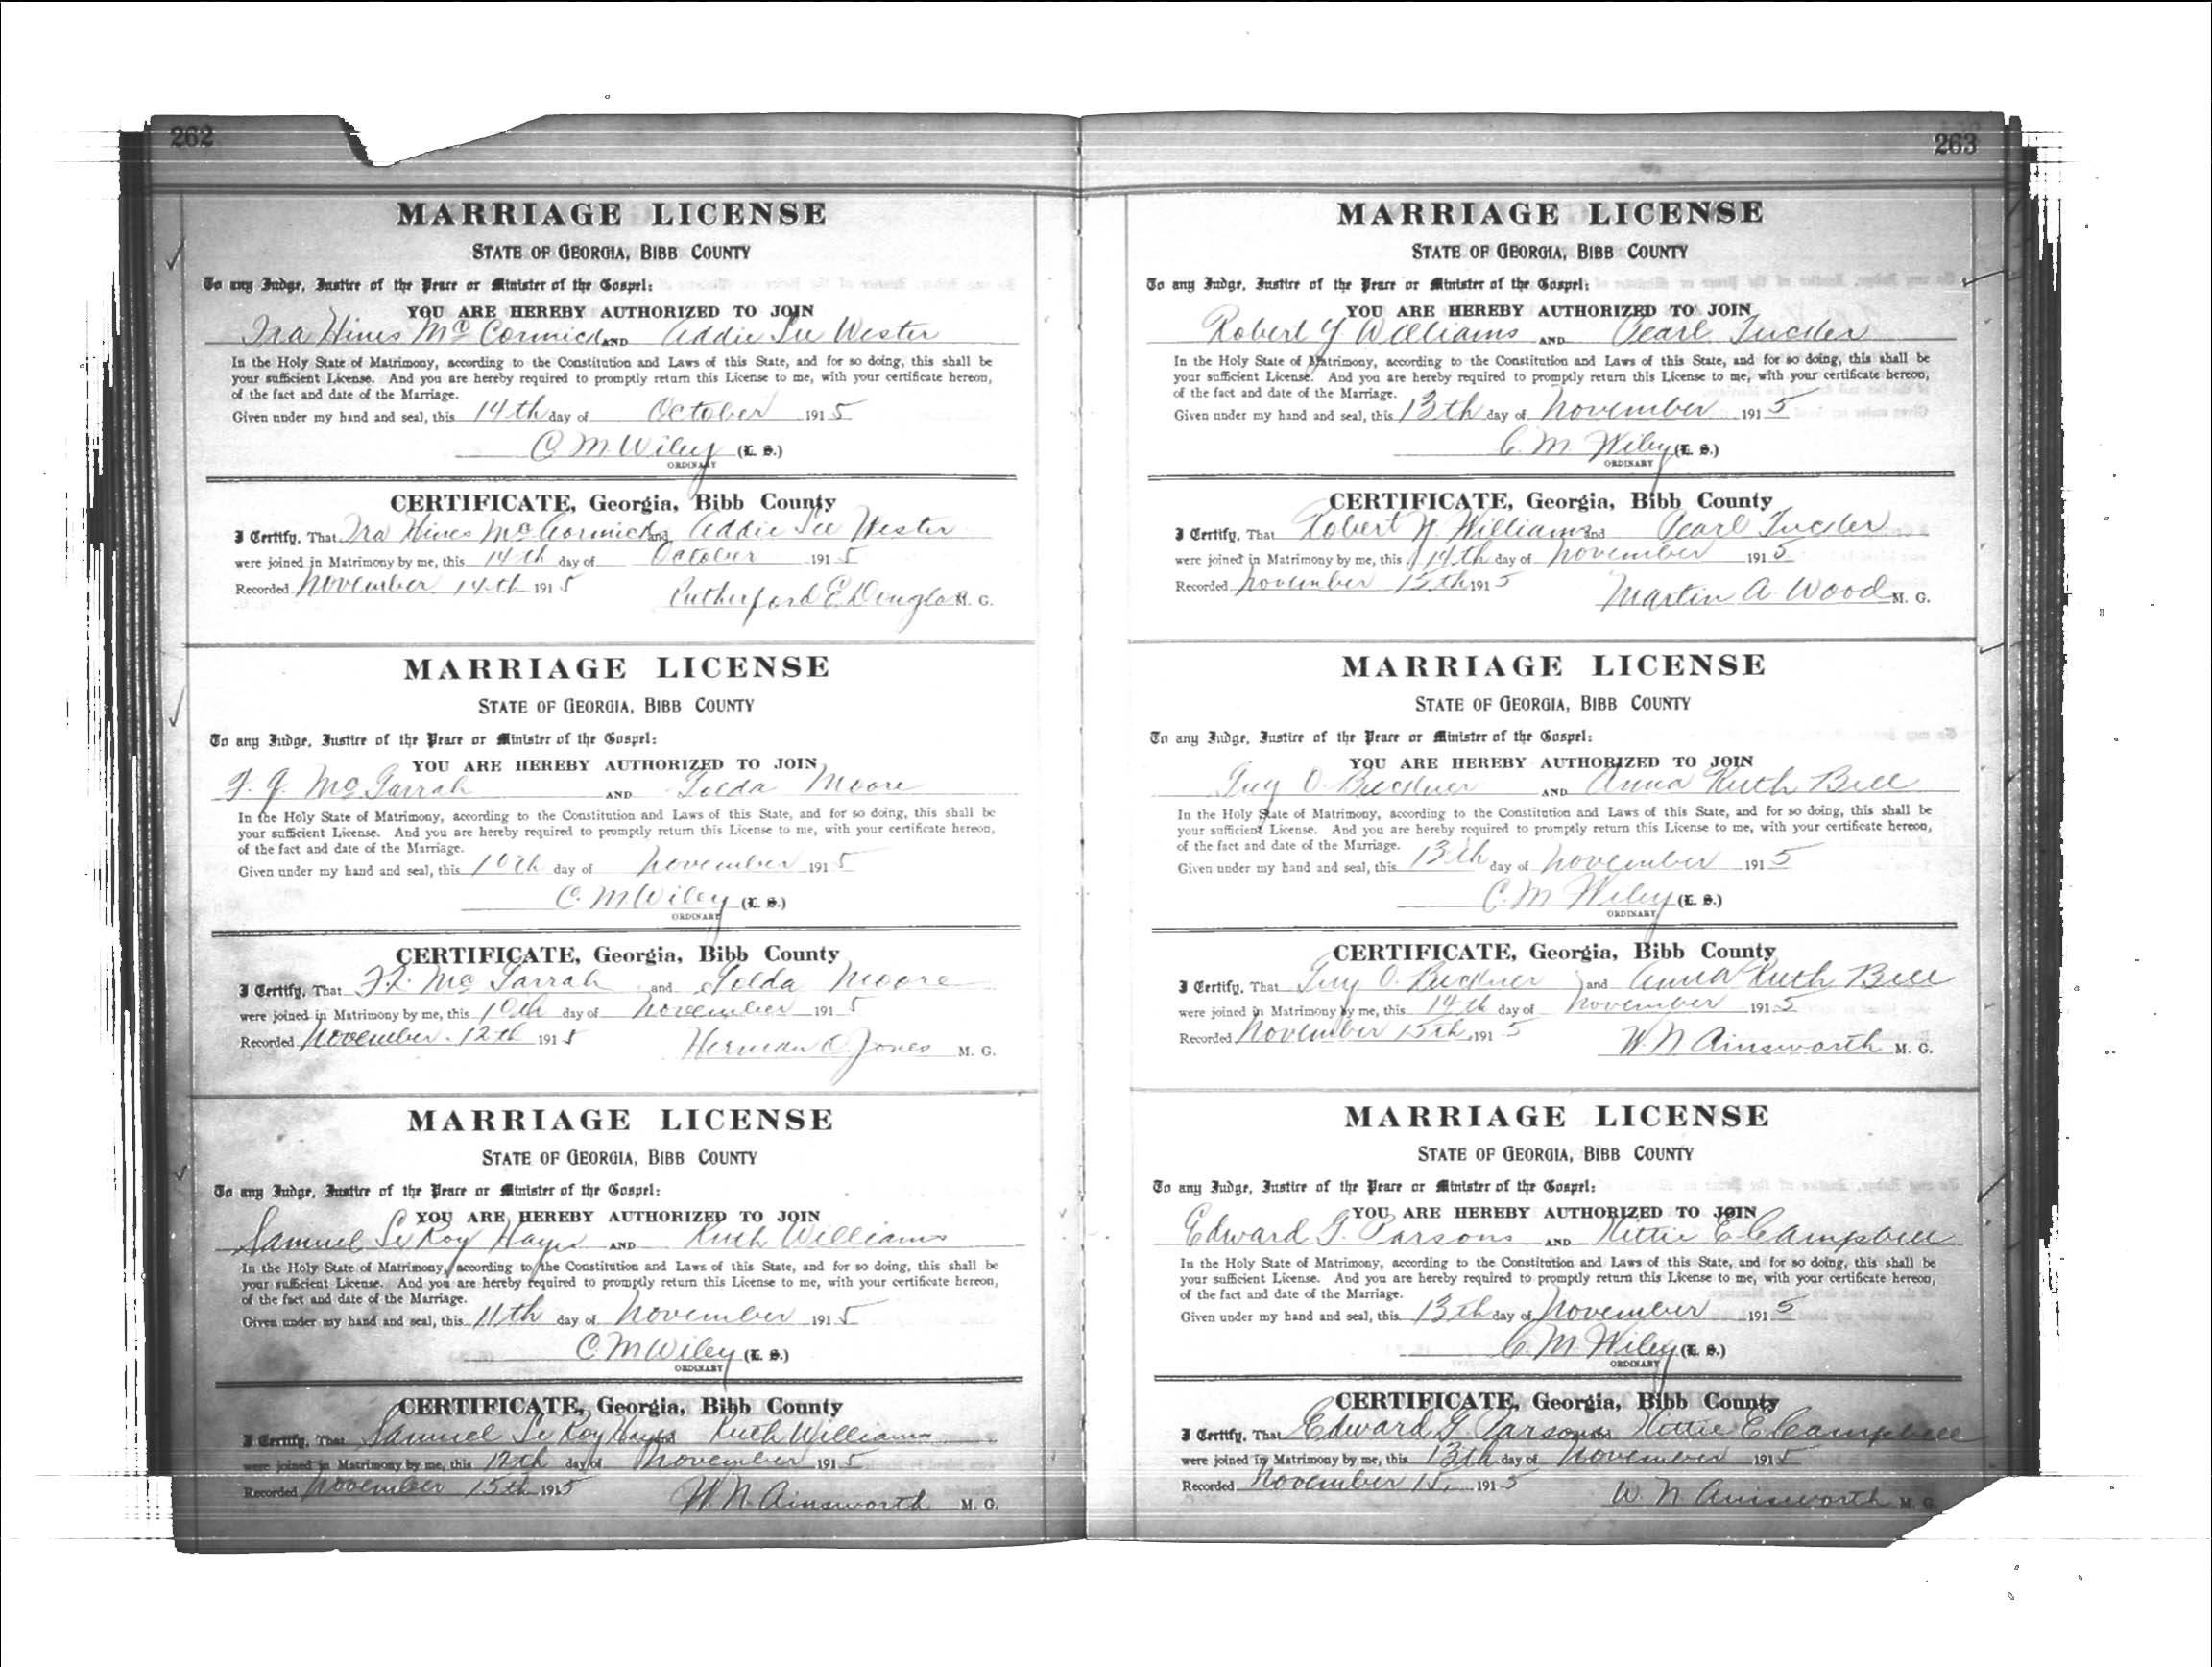 262
MARRIAGE LICENSE
STATE OF GEORGIA, BIBB COUNTY
To any Judge, Justice of the Peace or Minister of the Gospel:
YOU ARE HEREBY AUTHORIZED TO JOIN
Ira Hines McCormick AND Addie Lee Wester
In the Holy State of Matrimony, according to the Constitution and Laws of this State, and for so doing, this shall be
your sufficient License. And you are hereby required to promptly return this License to me, with your certificate hereon,
of the fact and date of the Marriage.
Given under my hand and seal, this 14th day of October 1915
C. M. Wiley (L. S.)
ORDINARY
CERTIFICATE, Georgia, Bibb County
I Certify, That Ira Hines McCormick and Addie Lee Wester
were joined in Matrimony by me, this 14th day of October 1915
Recorded November 14th 1915
Rutherford E. Douglas M. G.
MARRIAGE LICENSE
STATE OF GEORGIA, BIBB COUNTY
To any Judge, Justice of the Peace or Minister of the Gospel:
YOU ARE HEREBY AUTHORIZED TO JOIN
Mc Garrah AND Golda Moore
In the Holy State of Matrimony, according to the Constitution and Laws of this State, and for so doing, this shall be
your sufficient License. And you are hereby required to promptly return this License to me, with your certificate hereon,
of the fact and date of the Marriage.
Given under my hand and seal, this 10th day of November 1915
C. M Wiley (L. S.)
ORDINARY
CERTIFICATE, Georgia, Bibb County
I Certify, That Mc Garrah and Golda Moore
were joined in Matrimony by me, this 10th day of November 1915
Recorded November 12th 1915
Herman C. Jones M. G.
MARRIAGE LICENSE
STATE OF GEORGIA, BIBB COUNTY
To any Judge, Justice of the Peace or Minister of the Gospel:
YOU ARE HEREBY AUTHORIZED TO JOIN
Samuel Le Roy Hayes AND Ruth Williams
In the Holy State of Matrimony, according to the Constitution and Laws of this State, and for so doing, this shall be
your sufficient License. And you are hereby required to promptly return this License to me, with your certificate hereon,
of the fact and date of the Marriage.
Given under my hand and seal, this 11th day of November 1915
C M Wiley (L. S.)
ORDINARY
CERTIFICATE, Georgia, Bibb County
I Certify, That Samuel Le Roy Hayes and Ruth Williams
were joined in Matrimony by me, this 12th day of November 1915
Recorded November 15th 1915
W. N. Ainsworth M. G.
263
MARRIAGE LICENSE
STATE OF GEORGIA, BIBB COUNTY
To any Judge, Justice of the Peace or Minister of the Gospel:
YOU ARE HEREBY AUTHORIZED TO JOIN
Robert Y Williams AND Pearl Tucker
In the Holy State of Matrimony, according to the Constitution and Laws of this State, and for so doing, this shall be
your sufficient License. And you are hereby required to promptly return this License to me, with your certificate hereon,
of the fact and date of the Marriage.
Given under my hand and seal, this 13th day of November 1915
C. M. Wiley (L. S.)
ORDINARY
CERTIFICATE, Georgia, Bibb County
I Certify, That Robert Y. Williams and Pearl Tucker
were joined in Matrimony by me, this 14th day of November 1915
Recorded November 15th 1915
Martin A. Wood M. G.
MARRIAGE LICENSE
STATE OF GEORGIA, BIBB COUNTY
To any Judge, Justice of the Peace or Minister of the Gospel:
YOU ARE HEREBY AUTHORIZED TO JOIN
Guy O. Buckner AND Anna Ruth Bell
In the Holy State of Matrimony, according to the Constitution and Laws of this State, and for so doing, this shall be
your sufficient License. And you are hereby required to promptly return this License to me, with your certificate hereon,
of the fact and date of the Marriage.
Given under my hand and seal, this 13th day of November 1915
C. M Wiley (L. S.)
ORDINARY
CERTIFICATE, Georgia, Bibb County
I Certify, That Guy O. Buckner and Anna Ruth Bell
were joined in Matrimony by me, this 14th day of November 1915
Recorded November 15th 1915
W. N Ainsworth M. G.
MARRIAGE LICENSE
STATE OF GEORGIA, BIBB COUNTY
To any Judge, Justice of the Peace or Minister of the Gospel:
YOU ARE HEREBY AUTHORIZED TO JOIN
Edward G. Parsons AND Kittie E Campbell
In the Holy State of Matrimony, according to the Constitution and Laws of this State, and for so doing, this shall be
your sufficient License. And you are hereby required to promptly return this License to me, with your certificate hereon,
of the fact and date of the Marriage.
Given under my hand and seal, this 13th day of November 1915
C. M. Wiley (L. S.)
ORDINARY
CERTIFICATE, Georgia, Bibb County
I Certify, That Edward G. Parsons and Kittie E Campbell
were joined in Matrimony by me, this 13th day of November 1915
Recorded November 15, 1915
W. N Ainsworth M. G.